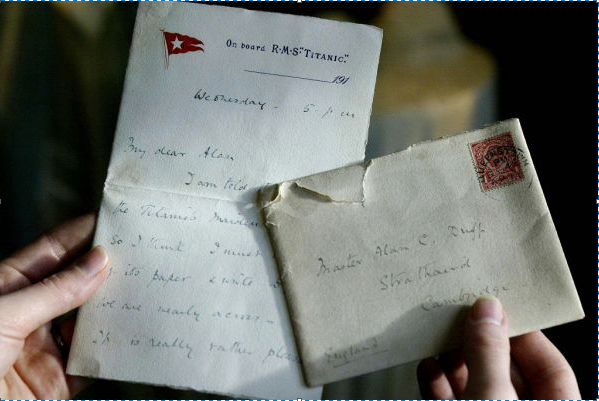 On board R·M·S "TITANIC".
191
Wednesday. 5. p m
My dear Alan
I am told
the Titanic's Maiden
So I think I must
its paper & write
We are nearly across –
It is really rather
Master Alan C.
Cambridge
England